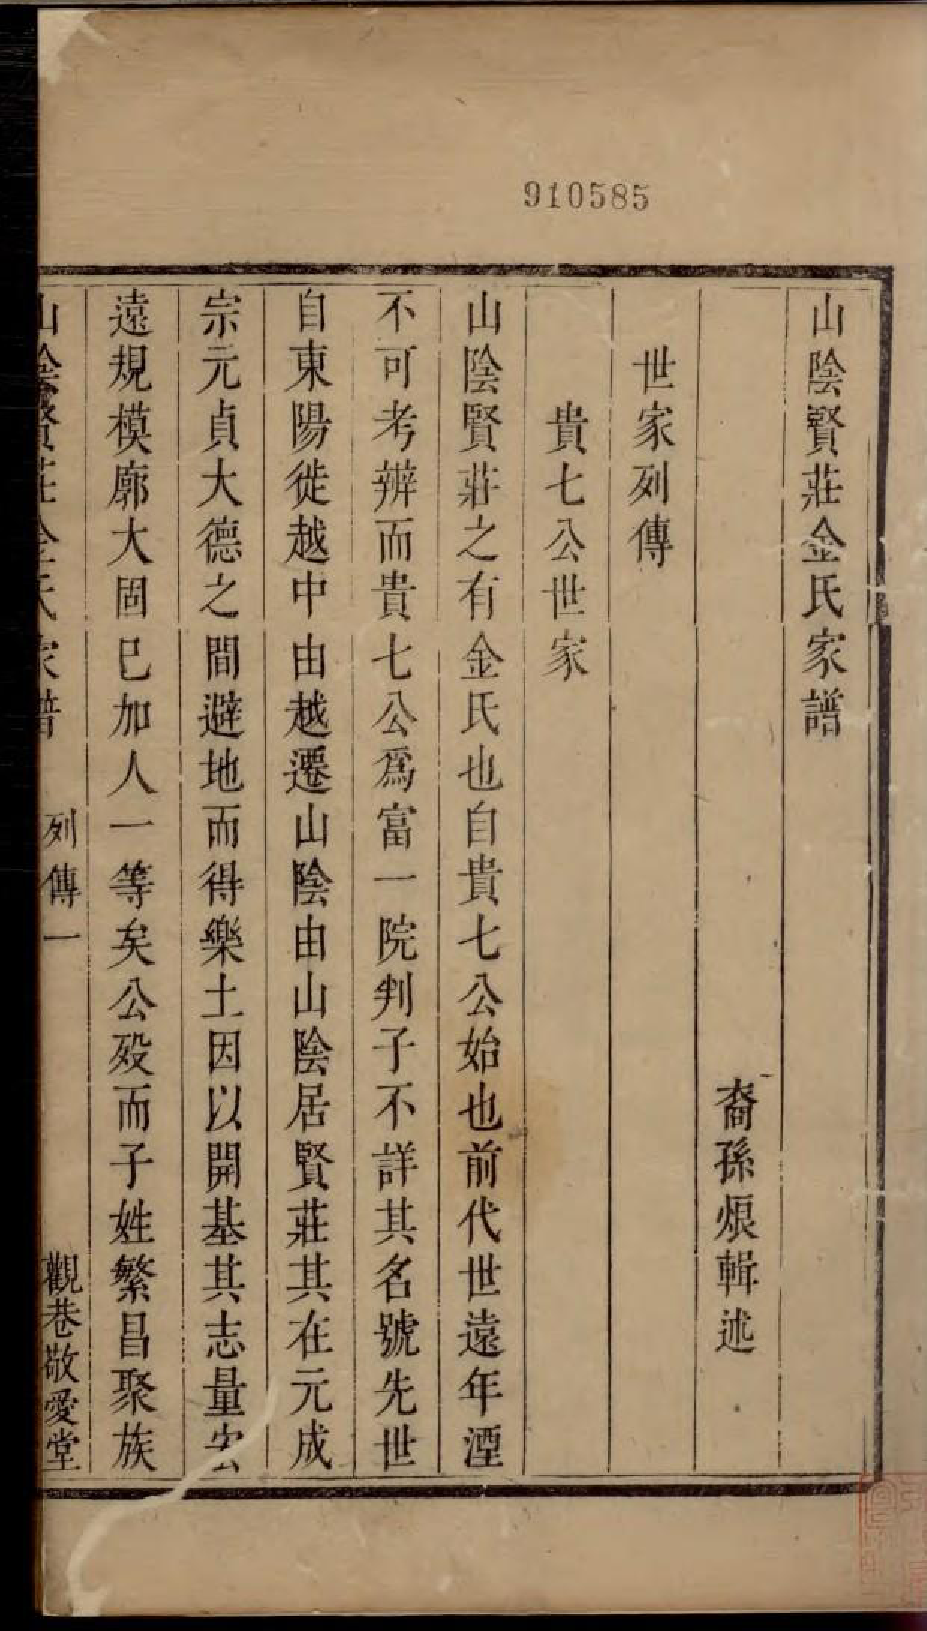 910585
山陰賢莊金氏家譜
裔孫烺輯述
世家列傳
貴七公世家
山陰賢莊之有金氏也自貴七公始也前代世遠年湮
不可考辨而貴七公爲富一院判子不詳其名號先世
自東陽徙越中由越遷山陰由山陰居賢莊其在元成
宗元貞大德之間避地而得樂土因以開基其志量宏
遠規模廓大固已加人一等矣公歿而子姓繁昌聚族
山陰賢莊金氏家譜 列傳一 觀巷敬愛堂